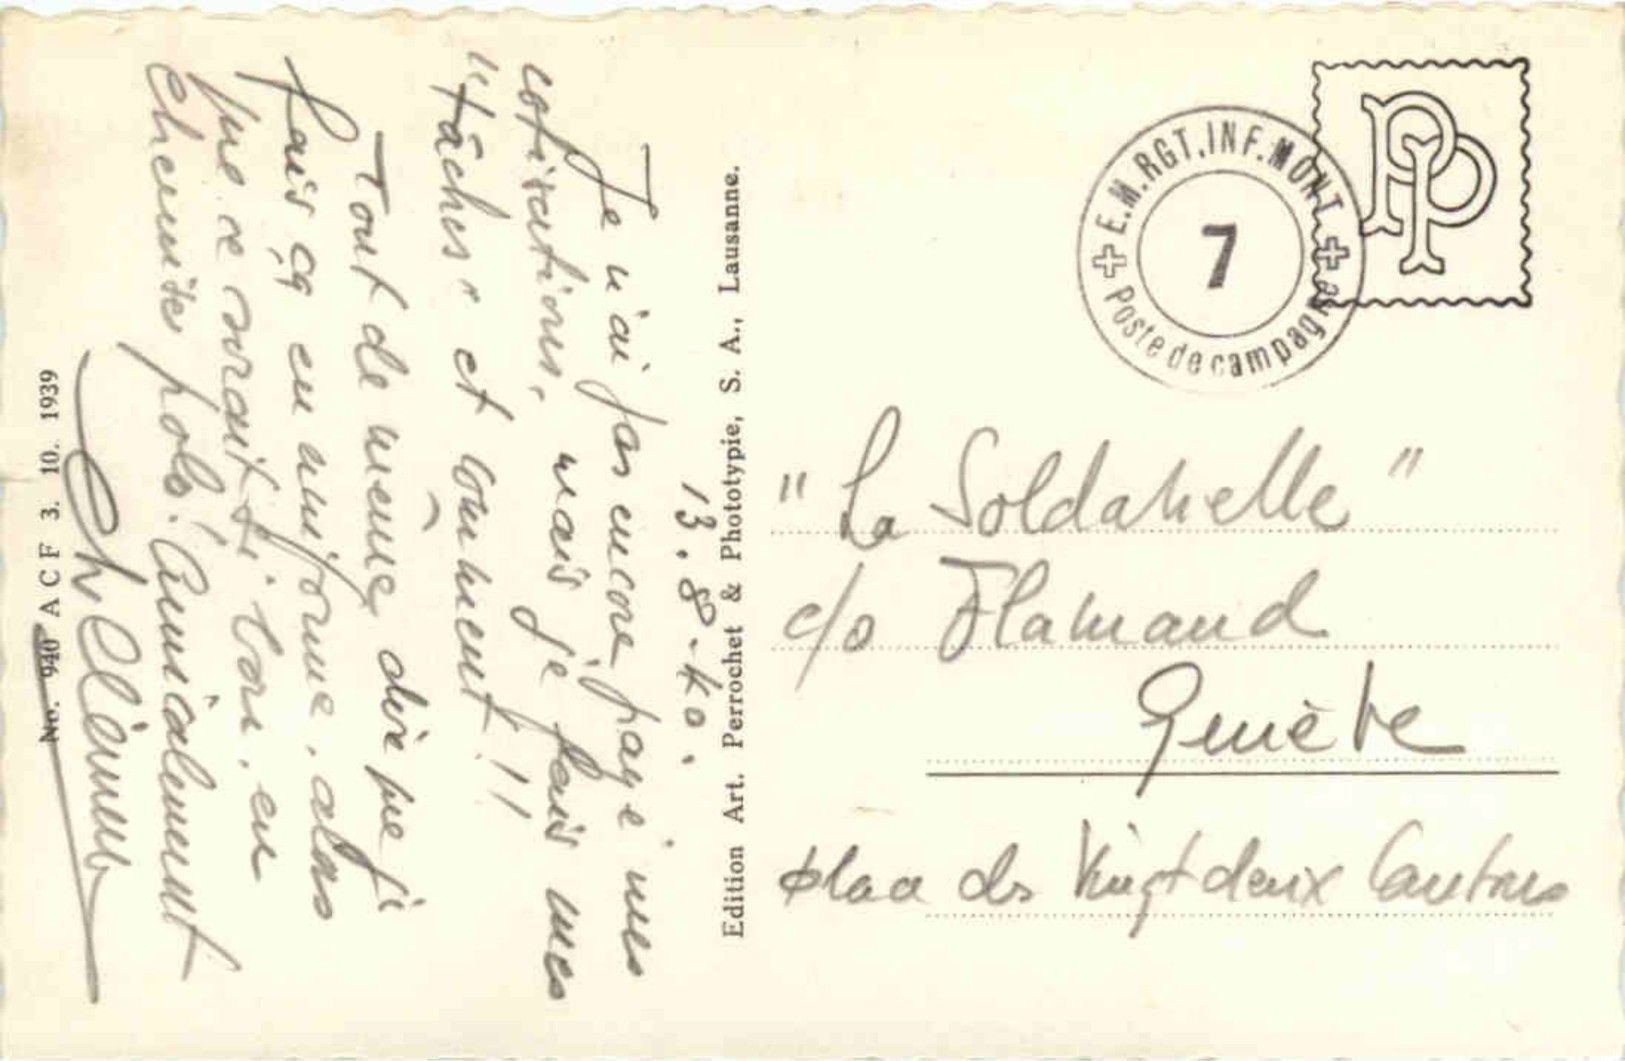 13.8.40.
Je n'ai pas encore payé mes
cotisations, mais je fais mes
"tâches" et comment!!
Tout de même, dire que j'
fais ça en uniforme, alors
que ce serait si bon, en
chemise polo! Amicalement
Edition Art. Perrochet & Phototypie, S. A., Lausanne.
No. 940 A C F 3. 10. 1939
E.M.RGT.INF.MONT.
7
Poste de campagne
PP
"La Soldanelle"
c/o Flamand
Genève
place des Vingt deux Cantons